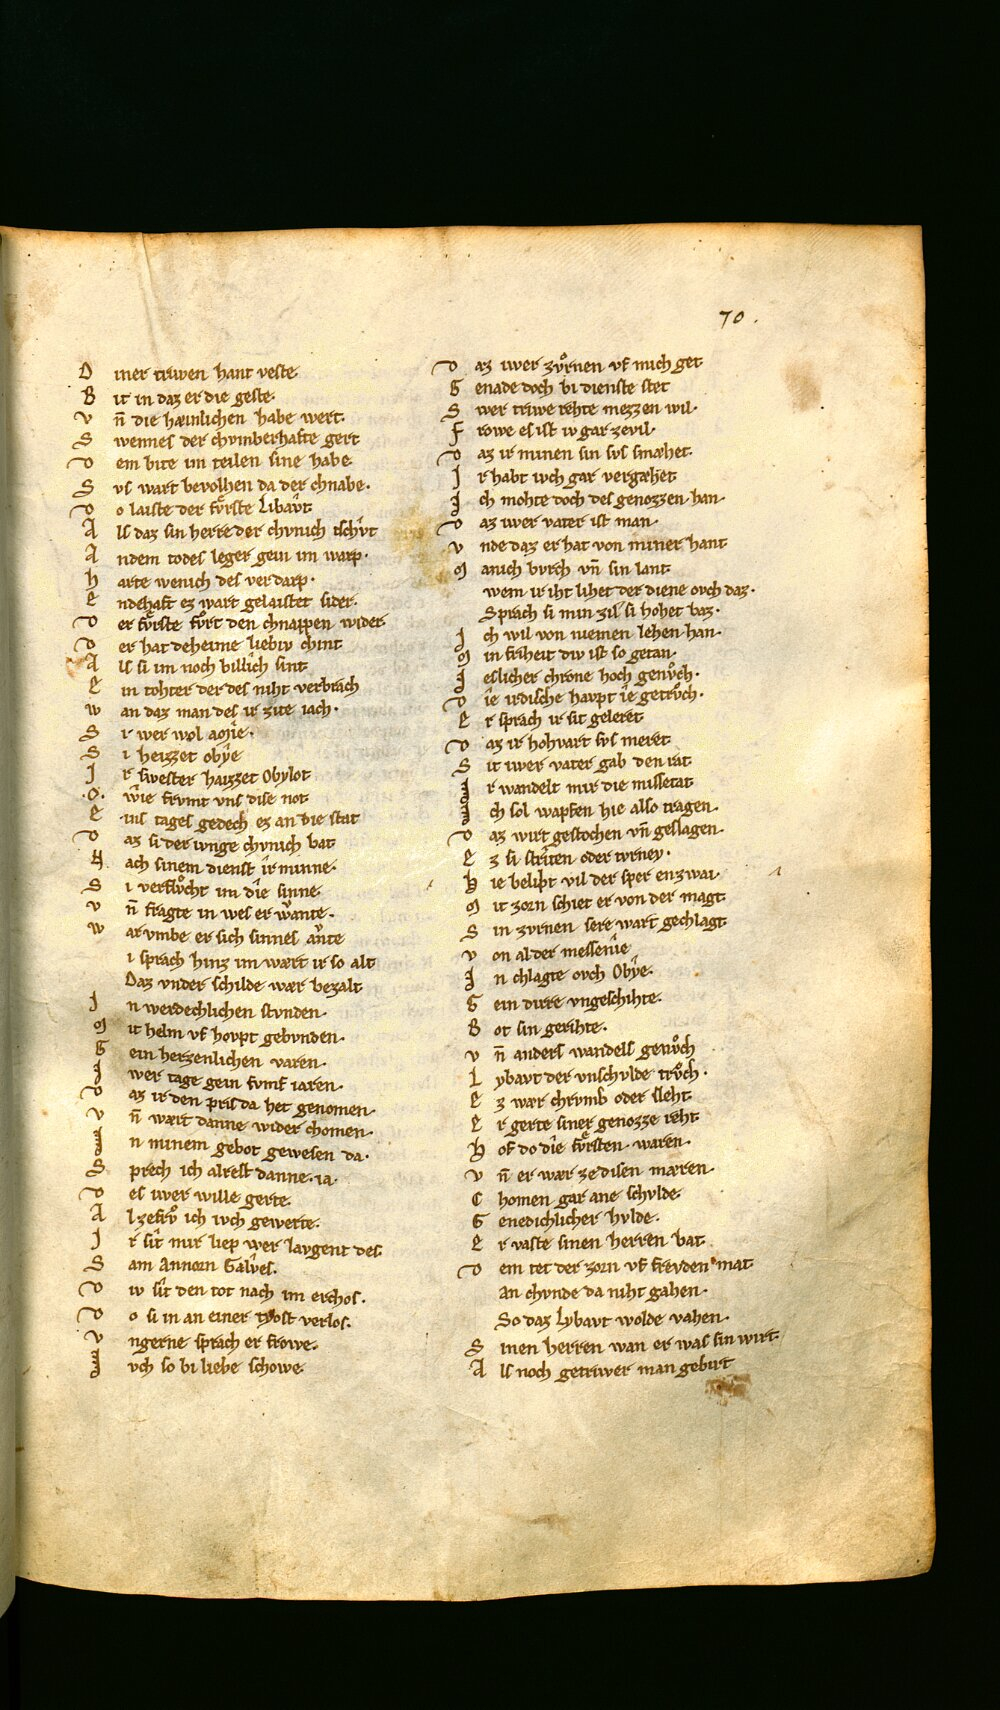 70.
D iner triwen hant veste
B it in daz er die geste
v n̄ die hæinlichen habe wert.
S wennes der chvmberhafte gert
D em bite im teilen sine habe
S vs wart bevolhen da der chnabe.
D o laiste der fv̊rste Libavt
A ls daz sin herre der chvnich tschyt
A ndem todes leger gein im warp.
h arte wenich des verdarp.
E ndehaft ez wart gelaistet sider.
D er fv̊rste fv̊rt den chnappen wider
D er hat deheime liebiv chint
A ls si im noch billich sint
E in tohter der des niht verbrach
w an daz man des ir zite iach.
S i wer wol amie.
S i heizzet obye
I r swester haizzet Obylot
.O. wie frvmt vns dise not
E ins tages gedech ez an die stat
D az si der ivnge chvnich bat
N ach sinem dienst ir minne.
S i verflv̊cht im die sinne
v n̄ fragte in wes er wante.
w arvmbe er sich sinnes ante
i sprach hinz im wært ir so alt
Daz vnder schilde wær bezalt
I n werdechlichen stvnden.
M it helm vf hovpt gebvnden.
G ein herzenlichen varen.
I wer tage gein fvmf iaren.
D az ir den pris da het genomen.
v n̄ wært danne wider chomen.
I n minem gebot gewesen da.
S prech ich alrest danne .ia.
D es iwer wille gerte.
A l zefrv̊ ich iwch gewerte.
I r sit mir liep wer lavgent des
S am Annorn Galves.
D iv sit den tot nach im erchos.
D o si in an einer tyost verlos.
v ngerne sprach er frowe.
I vch so bi liebe schowe.
D az iwer zv̊rnen vf mich get
G enade doch bi dienste stet
S wer triwe rehte mezzen wil.
F rowe es ist iv gar zevil.
D az ir minen sin svs smæhet.
I r habt iwch gar vergæhet
I ch mohte doch des genozzen han.
D az iwer vater ist man.
v nde daz er hat von miner hant
M anich bvrch vn̄ sin lant
wem ir iht lihet der diene ovch daz.
Sprach si min zil si hohet baz.
I ch wil von niemen lehen han.
M in friheit div ist so getan.
I eslicher chrone hoch genv̊ch.
D ie irdische havpt ie getrv̊ch.
E r sprach ir sit geleret
D az ir hohvart svs meret
S it iwer vater gab den rat
E r wandelt mir die missetat
I ch sol wapfen hie also tragen.
D az wirt gestochen vn̄ geslagen.
E z si striten oder tvrney.
H ie belibt vil der sper enzwai.
M it zorn schiet er von der magt
S in zvrnen sere wart gechlagt
v on al der messenie
I n chlagte ovch Obye.
G ein dirre vngeschihte.
B ot sin gerihte.
v n̄ anders wandels genv̊ch
L ybavt der vnschvlde trv̊ch.
E z wær chrvmb oder sleht
E r gerte siner genozze reht
H of do die fv̊rsten waren.
v n̄ er wær zedisen mæren.
C homen gar ane schvlde
G enedichlicher hvlde.
E r vaste sinen herren bat
D em tet der zorn vf frevden mat
An chvnde da niht gahen.
So daz Lybavt wolde vahen.
S inen herren wan er was sin wirt
A ls noch getriwer man gebirt